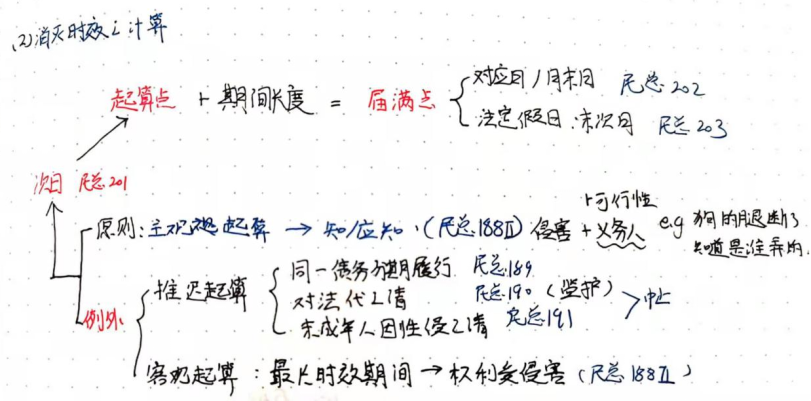 (2)消灭时效之计算
起算点 + 期间长度 = 届满点
对应日/月末日 民总202
法定假日·末次日 民总203
次日 民总201
原则:主观起算 → 知/应知·(民总188Ⅱ) 侵害+义务人
+可行性
e.g 狗的腿断了
知道是谁弄的.
例外
推迟起算
同一债务分期履行 民总189
对法代之请 民总190 (监护)
未成年人因性侵之请 民总191
中止
客观起算:最长时效期间→权利受侵害(民总188Ⅱ)